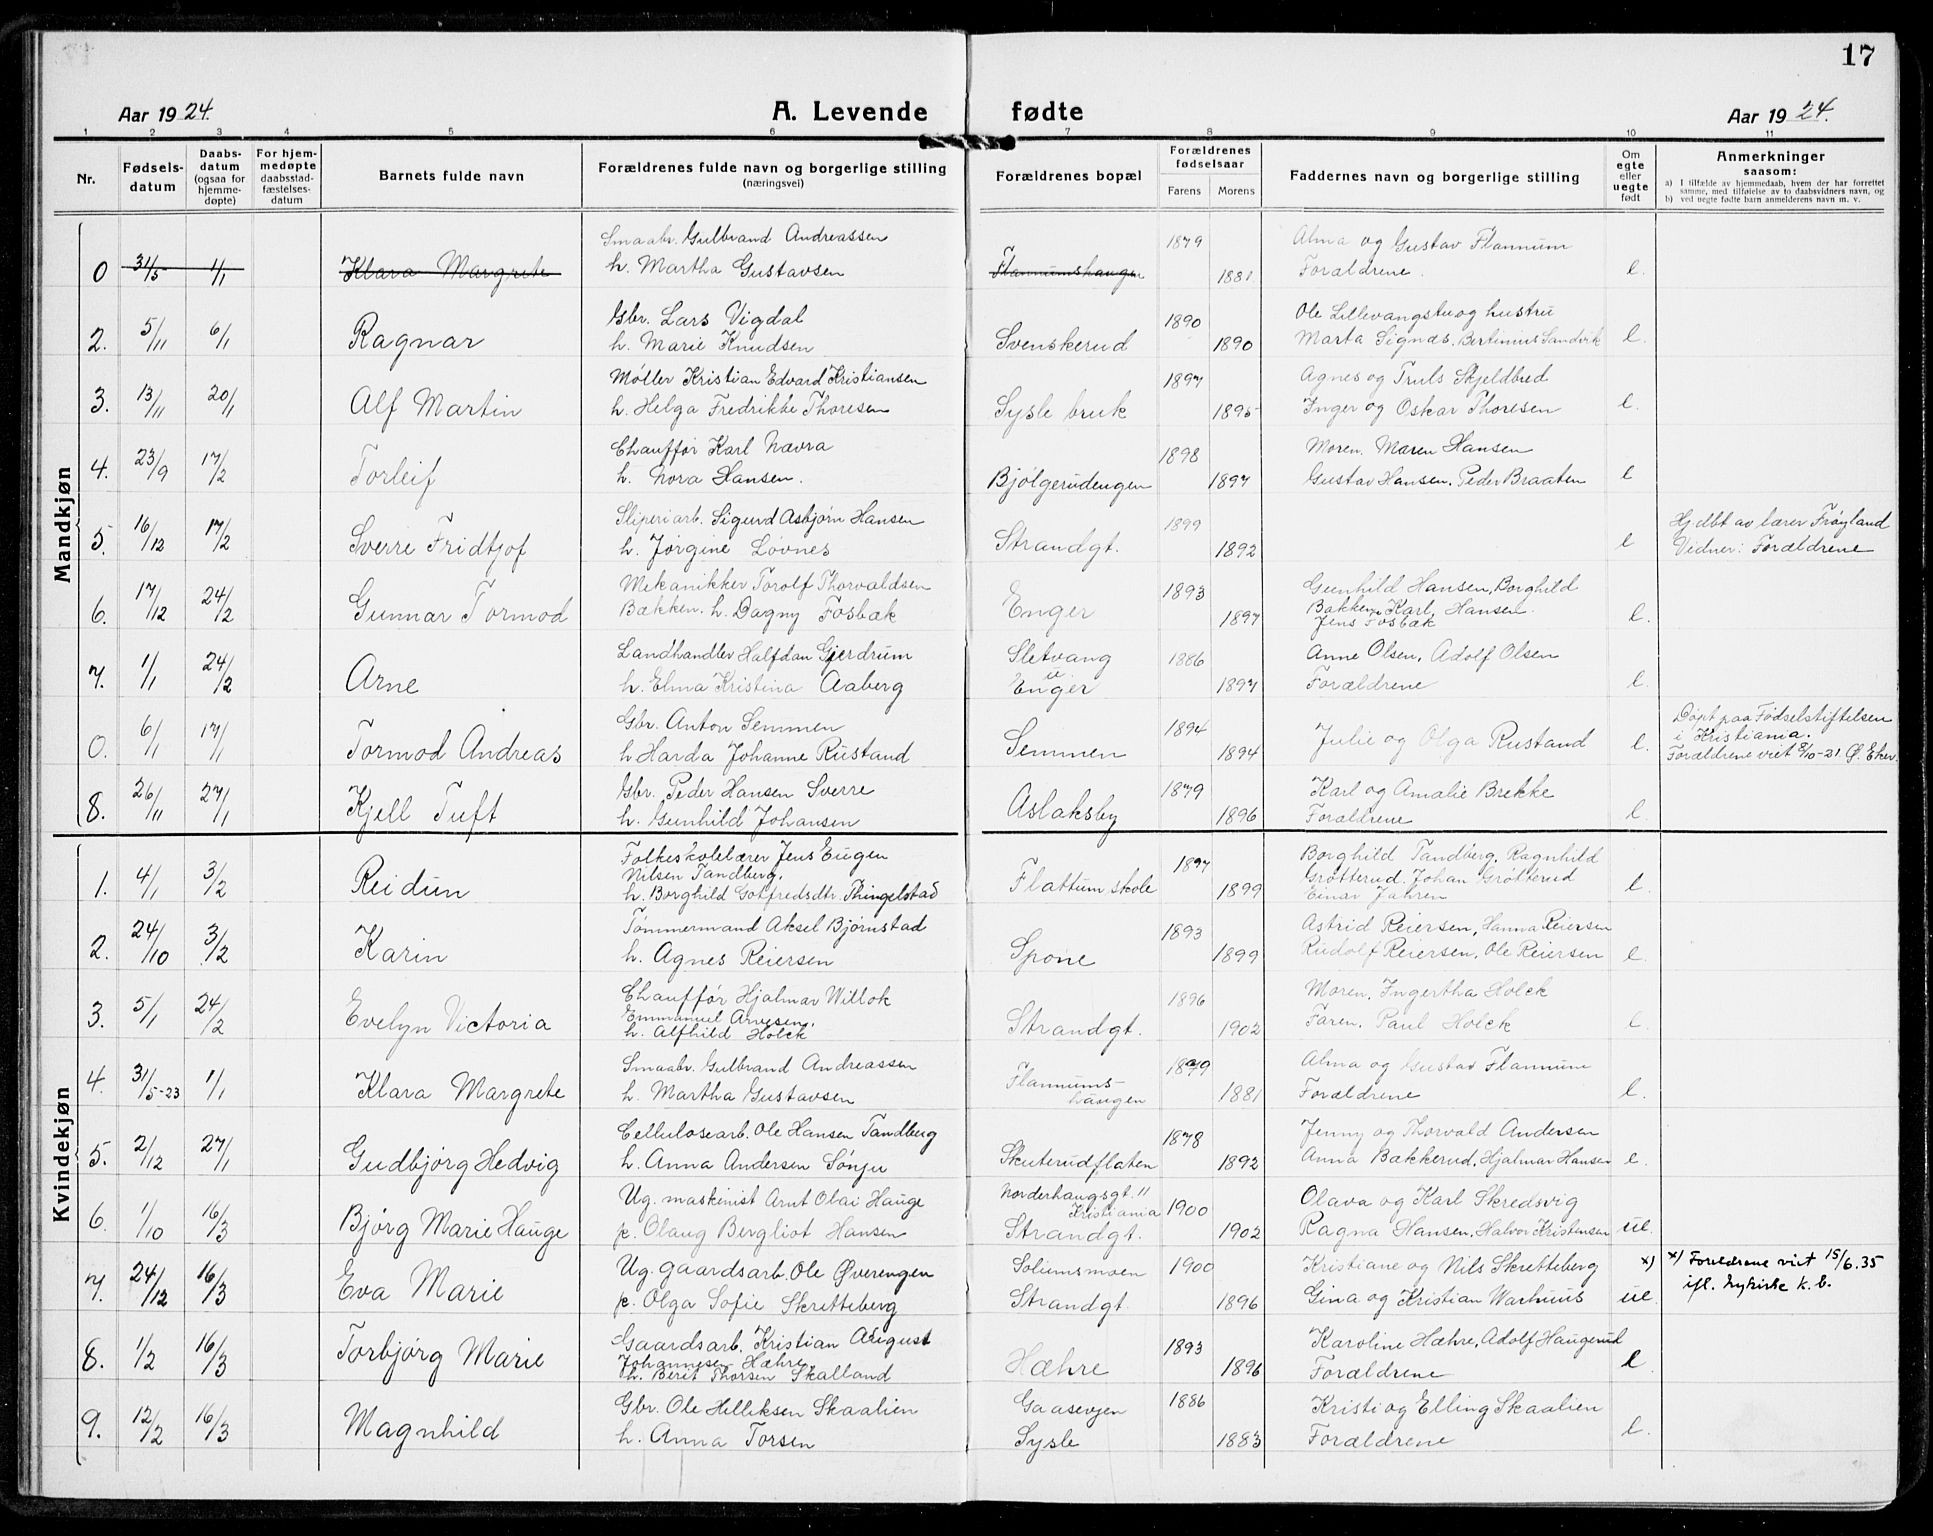 17
Aar 1924. A. Levende fødte Aar 1924.
1 2 3 4 5 6 7 8 9 10 11
Nr. Fødselsdatum Daabsdatum (ogsaa for hjemmedøpte) For hjemmedøpte daabsstadfæstelsesdatum Barnets fulde navn Forældrenes fulde navn og borgerlige stilling (næringsvei) Forældrenes bopæl Forældrenes fødselsaar Farens Morens Faddernes navn og borgerlige stilling Om egte eller uegte født Anmerkninger saasom:
a) I tilfælde av hjemmedaab, hvem der har forrettet samme, med tilføielse av to daabsvidners navn, og
b) ved uegte fødte barn anmelderens navn m. v.
Mandkjøn
Smaabr. Gulbrand Andreassen 1879 Alma og Gustav Flannum
0 31/5 1/1 Klara Margrete h. Martha Gustavsen Flannumshaugen 1881 Forældrene. e.
Gbr. Lars Vigdal 1890 Ole Lillevangstu og hustru
2. 5/11 6/1 Ragnar h. Marie Knudsen Svenskerud 1890 Marta Signæs, Bertinius Sandvik e.
Møller Kristian Edvard Kristiansen 1897 Agnes og Truls Skjeldbred
3. 13/11 20/1 Alf Martin h. Helga Fredrikke Thoresen Sysle bruk 1895 Inger og Oskar Thoresen e.
Chauffør Karl Navra 1898 Moren. Maren Hansen
4. 23/9 17/2 Torleif h. Nora Hansen. Bjølgerudengen 1897 Gustav Hansen, Peder Braaten e
Sliperiarb. Sigurd Asbjørn Hansen 1899 Hj.døbt av lærer Frøyland
5. 16/12 17/2 Sverre Fridtjof h. Jørgine Løvnes Strandgt. 1892 e Vidner: Forældrene
Mekanikker Torolf Thorvaldsen 1893 Gunhild Hansen, Borghild
6. 17/12 24/2 Gunnar Tormod Bækken. h. Dagny Fosbæk Enger 1897 Bakken, Karl Hansen. e.
Jens Fosbæk
Landhandler Halfdan Gjerdrum Sletvang 1886 Anne Olsen, Adolf Olsen
7. 1/1 24/2 Arne h. Elma Kristina Aaberg Enger 1897 Forældrene e.
Gbr. Anton Semmen 1894 Døpt paa Fødselstiftelsen
i Kristiania.
0. 6/1 17/1 Tormod Andreas h Harda Johanne Rustand Semmen 1894 Julie og Olga Rustand e. Forældrene viet 8/10-21 Ø. Eker.
Gbr. Peder Hansen Sverre 1879 Karl og Amalie Brekke
8. 26/11 27/1 Kjell Tuft h. Gunhild Johansen Aslaksby 1896 Forældrene e.
Kvindekjøn
Folkeskolelærer Jens Eugen 1897 Borghild Tandberg, Ragnhild
Nilsen Tandberg, Grøtterud, Johan Grøtterud
1. 4/1 3/2 Reidun h. Borghild Gotfredsdtr. Thingelstad Flattum skole 1899 Einar Jahren e.
Tømmermand Aksel Bjørnstad 1893 Astrid Reiersen, Hanna Reiersen
2. 24/10 3/2 Karin h. Agnes Reiersen Spone 1899 Rudolf Reiersen, Ole Reiersen e.
Chauffør Hjalmar Willok 1896 Moren, Ingertha Holck
Emmanuel Arvesen,
3. 5/1 24/2 Evelyn Victoria h. Alfhild Holck Strandgt. 1902 Faren, Paul Holck e.
Smaabr. Gulbrand Andreassen Flannums- 1879 Alma og Gustav Flannum
4. 31/5-23 1/1 Klara Margrete h. Martha Gustavsen haugen 1881 Forældrene e.
Cellulosearb. Ole Hansen Tandberg 1878 Jenny og Thorvald Andersen
5. 2/12 27/1 Gudbjørg Hedvig h. Anna Andersen Sønju Skuterudflaten 1892 Anna Bakkerud, Hjalmar Hansen e.
Ug. maskinist Arnt Olai Hauge Norderhaugsgt. 11 Kristiania 1900 Olava og Karl Skredsvig
6. 1/10 16/3 Bjørg Marie Hauge p. Olaug Bergliot Hansen Strandgt. 1902 Ragna Hansen, Halvor Kristensen ue.
Ug. gaardsarb. Ole Øverengen Soliumsmoen 1900 Kristiane og Nils Skretteberg x) x) Foreldrene viet 15/6.35
7. 24/12 16/3 Eva Marie p. Olga Sofie Skretteberg Strandgt. 1896 Gina og Kristian Warhuus ue. ifl. Nykirke k. b.
Gaardsarb. Kristian August 1893 Karoline Hæhre, Adolf Haugerud
Johannesen Hæhre
8. 1/2 16/3 Torbjørg Marie h. Berit Thorsen Skalland Hæhre 1896 Forældrene e
Gbr. Ole Helliksen Skaalien Gaasevjen 1886 Kristi og Elling Skaalien
9. 12/2 16/3 Magnhild h. Anna Torsen Sysle 1883 Forældrene e.